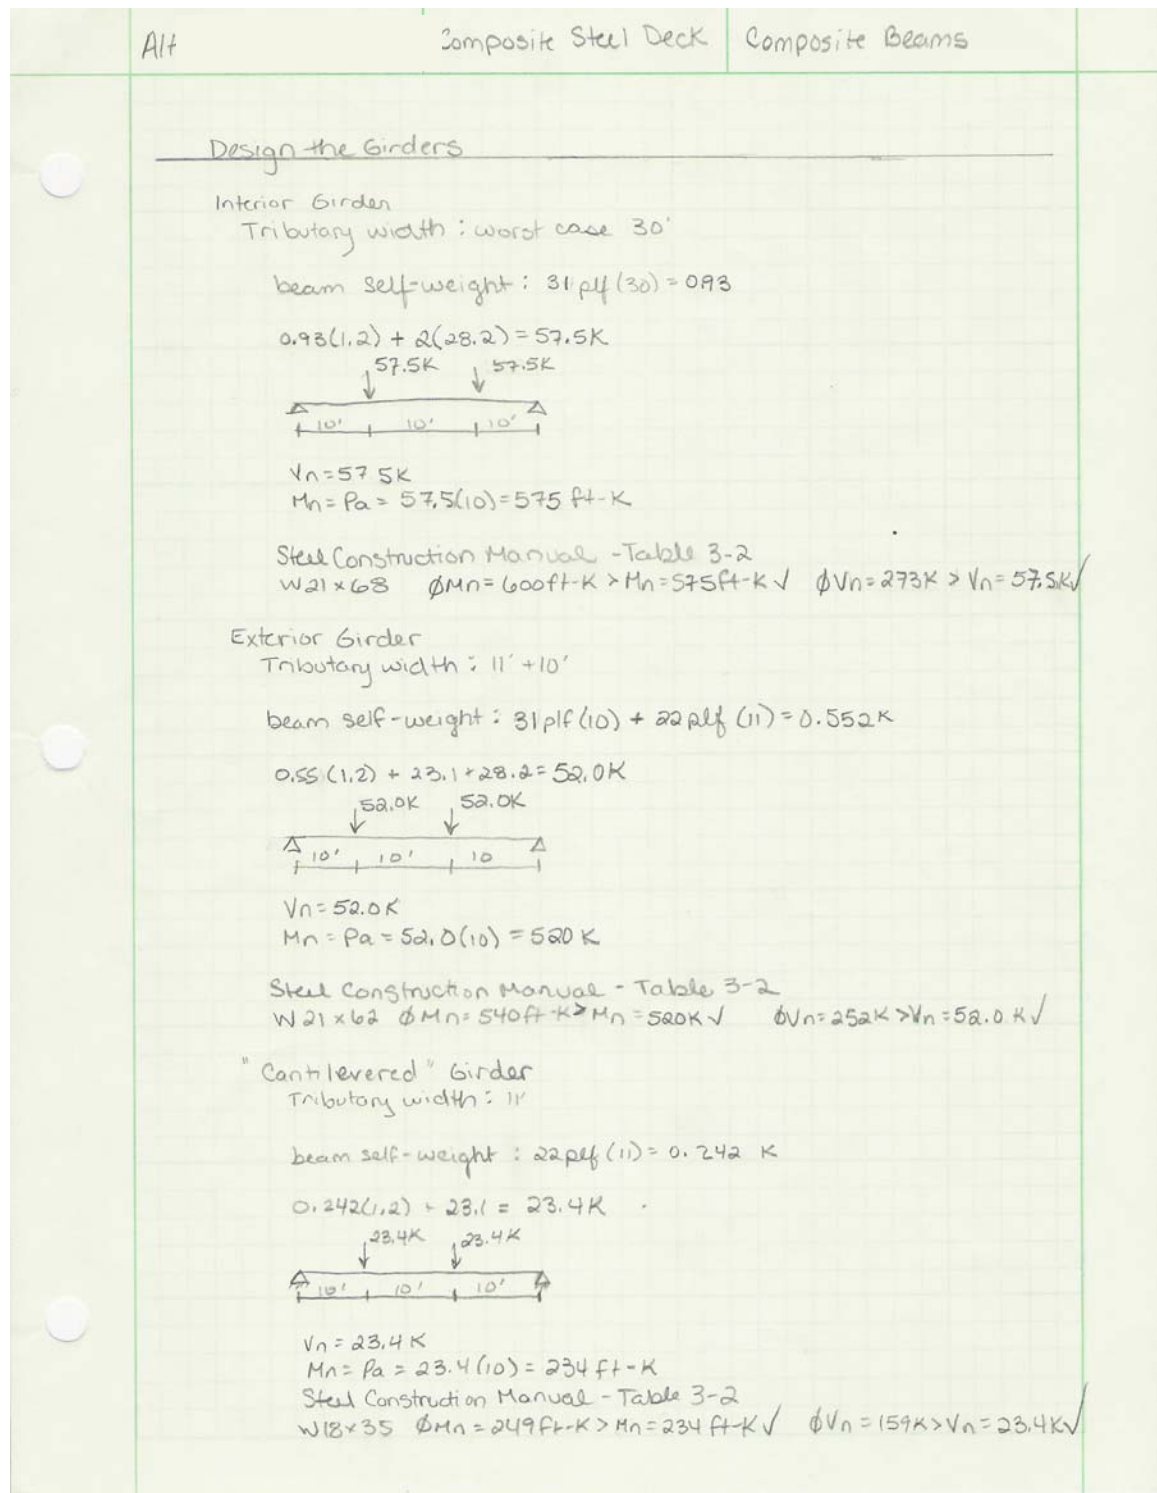 Alt Composite Steel Deck Composite Beams
Design the Girders
Interior Girder
Tributary width : worst case 30'
beam self-weight : 31 plf (30) = 0.93
0.93(1.2) + 2(28.2) = 57.5K
57.5K 57.5K
10' 10' 10'
Vn = 57.5K
Mn = Pa = 57.5(10) = 575 ft-K
Steel Construction Manual - Table 3-2
W21×68 ϕMn = 600ft-K > Mn = 575ft-K √ ϕVn = 273K > Vn = 57.5K√
Exterior Girder
Tributary width : 11' + 10'
beam self-weight : 31plf (10) + 22plf (11) = 0.552K
0.55 (1.2) + 23.1 + 28.2 = 52.0K
52.0K 52.0K
10' 10' 10
Vn = 52.0K
Mn = Pa = 52.0(10) = 520 K
Steel Construction Manual - Table 3-2
W21×62 ϕMn = 540ft-K > Mn = 520K √ ϕVn = 252K > Vn = 52.0 K√
"Cantilevered" Girder
Tributary width : 11'
beam self-weight : 22plf (11) = 0.242 K
0.242(1.2) + 23.1 = 23.4K
23.4K 23.4K
10' 10' 10'
Vn = 23.4K
Mn = Pa = 23.4(10) = 234 ft-K
Steel Construction Manual - Table 3-2
W18×35 ϕMn = 249ft-K > Mn = 234 ft-K √ ϕVn = 159K > Vn = 23.4K√